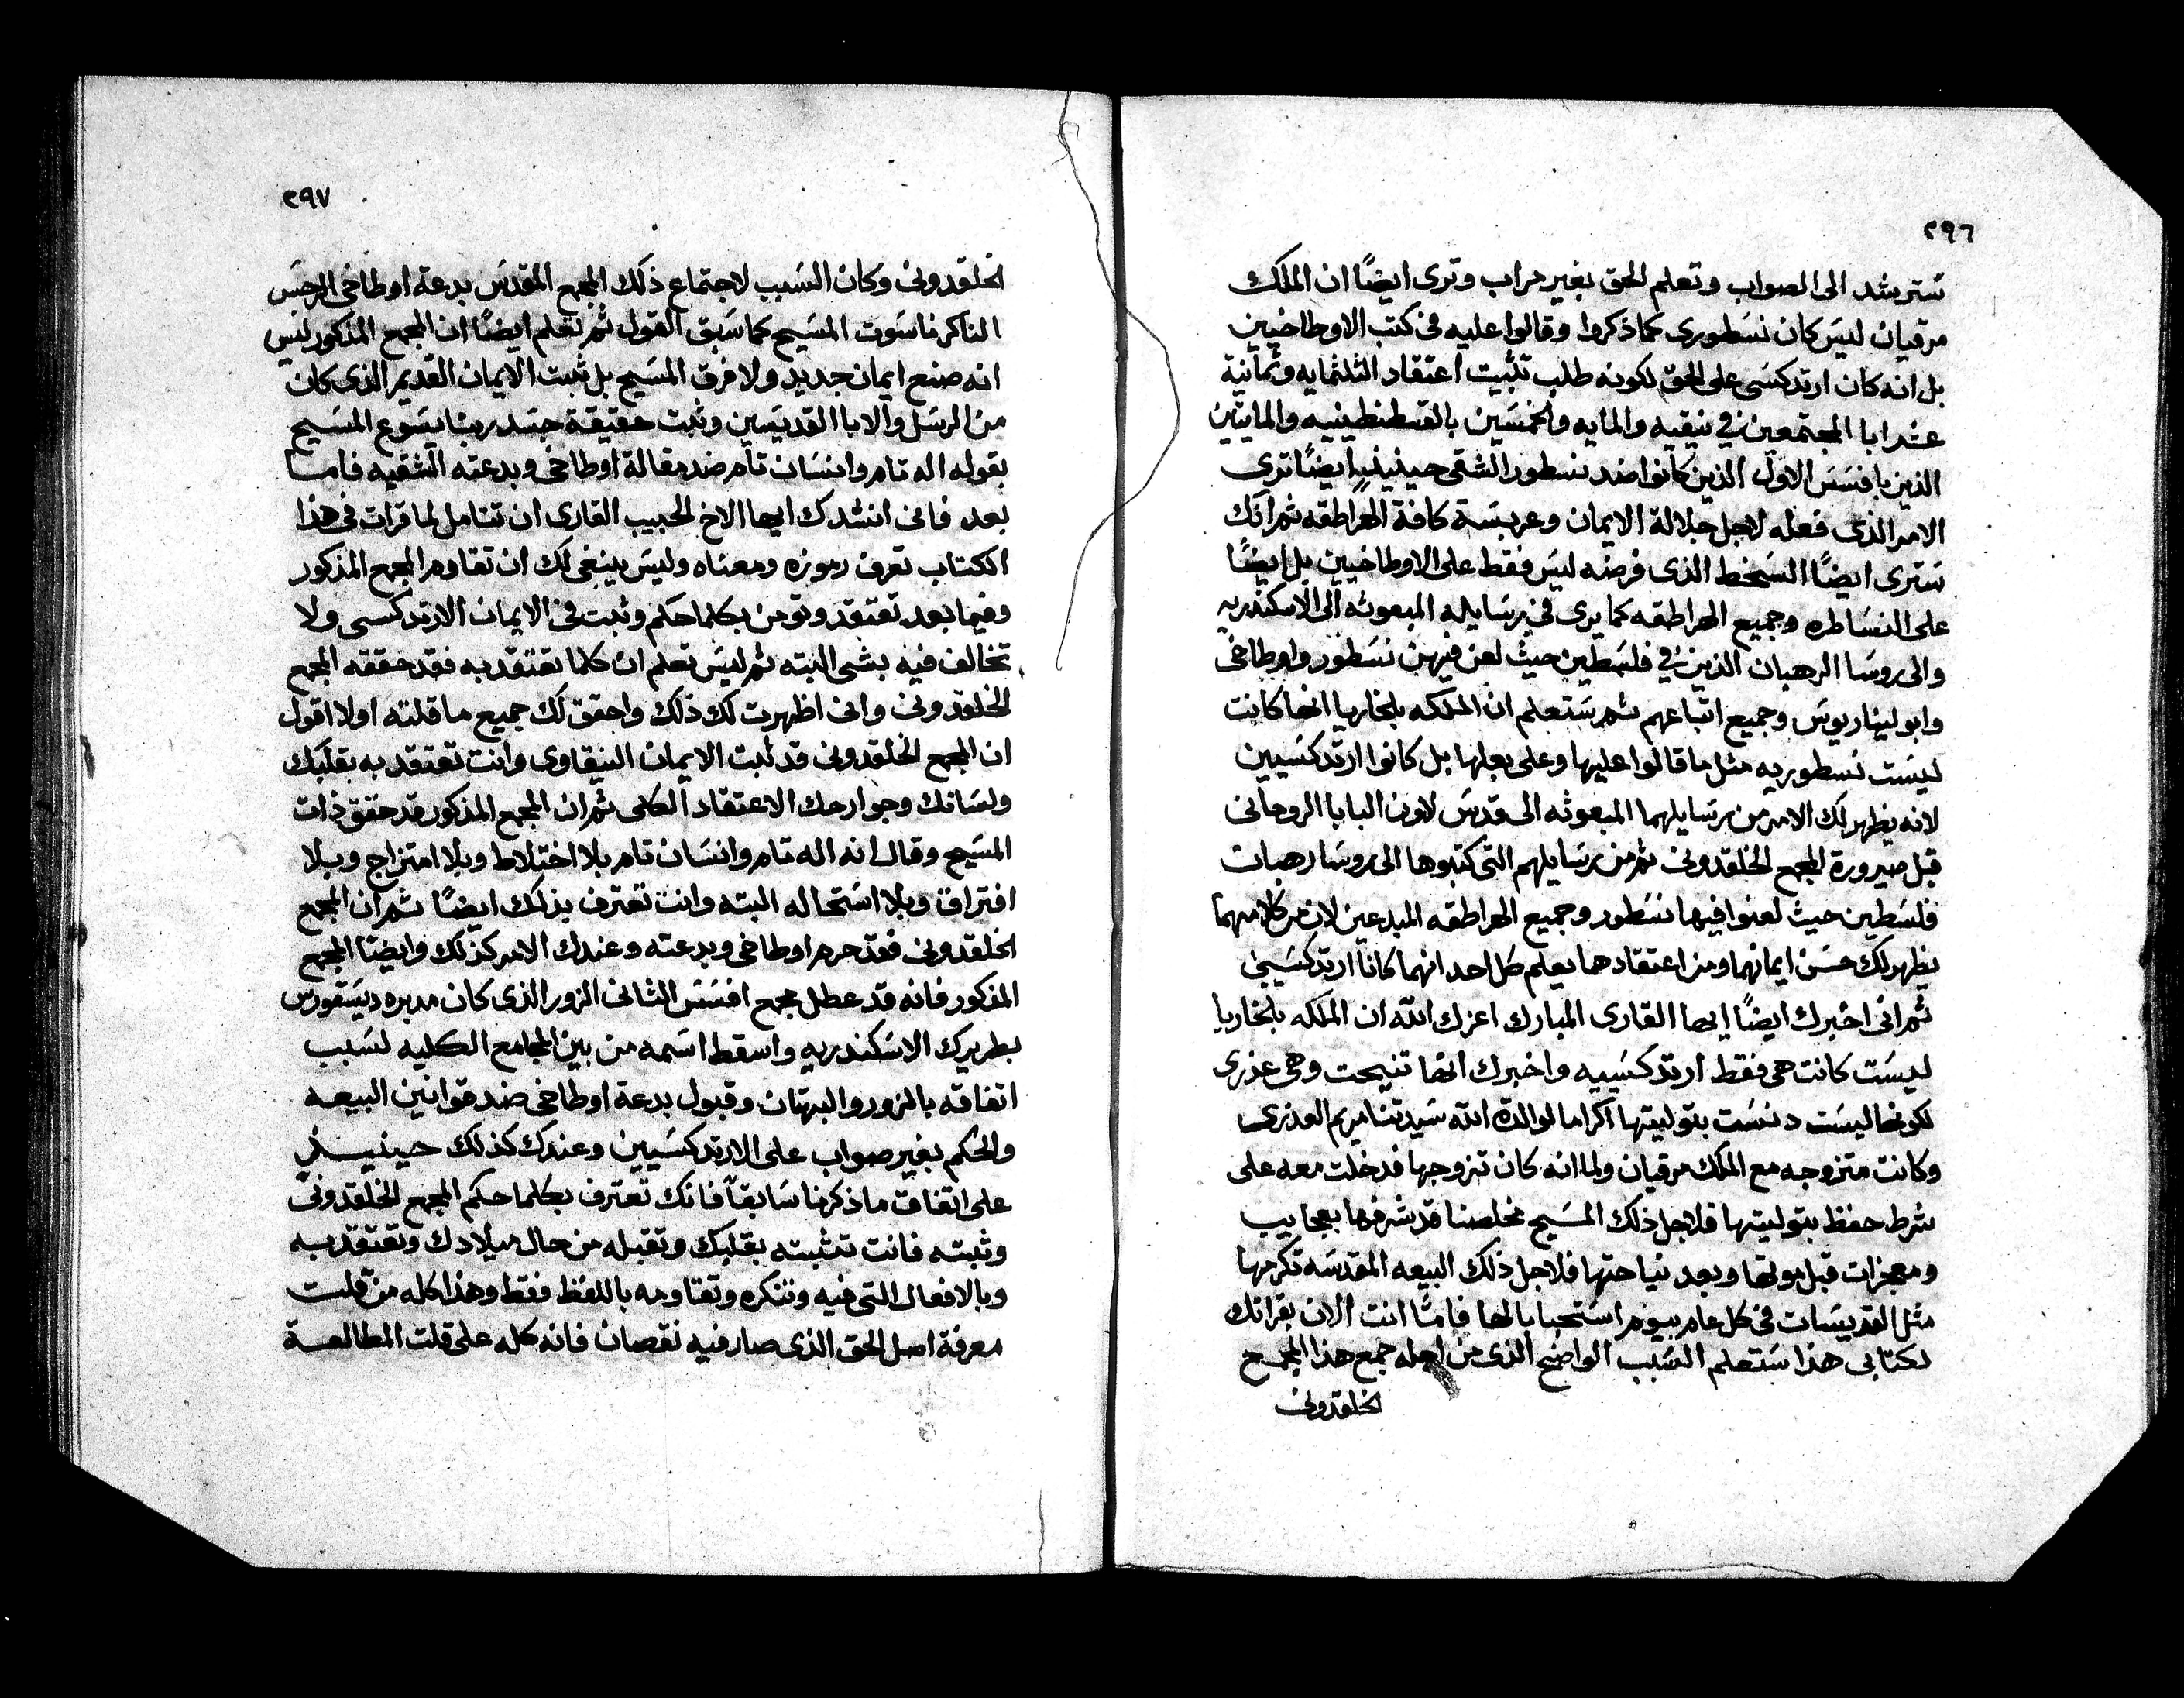 ٢٩٦
تسترشد الى الصواب وتعلم الحق بغير مراب وترى ايضًا ان الملك
مرقيان ليس كان نسطورى كما ذكروا وقالوا عليه فى كتب الاوطاخيين
بل انه كان ارتدكسى على الحق لكونه طلب تثبيت اعتقاد الثلثمايه وثمانية
عشر ابا المجتمعين فى نيقيه والمايه والخمسين بالقسطنطينيه والمايتين
الذين بافسس الاول الذين كانوا ضد نسطور الشقى حينيذٍ ايضًا ترى
الامر الذى فعله لاجل جلالة الايمان وعربسة كافة الهراطقه ثم انك
سترى ايضًا السخط الذى فرضه ليس فقط على الاوطاخيين بل ايضًا
على النساطره وجميع الهراطقه كما يرى فى رسايله المبعوثه الى الاسكندريه
والى روسا الرهبان الذين فى فلسطين حيث لعن فيهن نسطور واوطاخى
وابوليناريوس وجميع اتباعهم ثم ستعلم ان الملكه بلخاريا انها كانت
ليست نسطوريه مثل ما قالوا عليها وعلى بعلها بل كانوا ارتدكسيين
لانه يظهر لك الامر من رسايلهما المبعوثه الى قدس لاون البابا الروحانى
قبل صيرورة المجمع الخلقدونى ثم من رسايلهم التى كتبوها الى روسا رهبات
فلسطين حيث لعنوا فيها نسطور وجميع الهراطقه المبدعين لان من كلامهما
يظهر لك حسن ايمانهما ومن اعتقادهما يعلم كل احد انهما كانا ارتدكسيين
ثم انى اخبرك ايضًا ايها القارى المبارك اعزك الله ان الملكه بلخاريا
ليست كانت هى فقط ارتدكسييه واخبرك انها تنيحت وهى عذرى
لكونها ليست دنست بتوليتها اكراما لوالدة الله سيدتنا مريم العذرى
وكانت متزوجه مع الملك مرقيان ولما انه كان تزوجها فدخلت معه على
شرط حفظ بتوليتها فلاجل ذلك المسيح مخلصنا قد شرفها بعجايب
ومعجزات قبل موتها وبعد نياحتها فلاجل ذلك البيعه المقدسه تكرمها
مثل القديسات فى كل عام بيوم استحبابا لها فامّا انت الان بقراتك
لكتابى هذا ستعلم السبب الواضح الذى من اجله جمع هذا المجمع
الخلقدونى
٢٩٧
الخلقدونى وكان السبب لاجتماع ذلك المجمع المقدس بدعة اوطاخى الرجس
الناكر ناسوت المسيح كما سبق القول ثم تعلم ايضًا ان المجمع المذكور ليس
انه صنع ايمان جديد ولا فرق المسيح بل ثبت الايمان القديم الذى كان
من الرسل والابا القديسين وثبت حقيقة جسد ربنا يسوع المسيح
بقوله اله تام وانسان تام ضد مقالة اوطاخى وبدعته الشقيه فامـا
بعد فانى انشدك ايها الاخ الحبيب القارى ان تتامل لما قرات فى هذا
الكتاب تعرف رموزه ومعناه وليس ينبغى لك ان تقاوم المجمع المذكور
وفيما بعد تعتقد وتومن بكلما حكم وثبت فى الايمان الارتدكسى ولا
تخالف فيه بشى البته ثم ليس تعلم ان كلما تعتقد به فقد حققه المجمع
الخلقدونى وانى اظهرت لك ذلك واحقق لك جميع ما قلته اولا اقول
ان المجمع الخلقدونى قد ثبت الايمان النيقاوى وانت تعتقد به بقلبك
ولسانك وجوارحك الاعتقاد الكلى ثم ان المجمع المذكور قد حقق ذات
المسيح وقال انه اله تام وانسان تام بلا اختلاط وبلا امتزاج وبلا
افتراق وبلا استحاله البته وانت تعترف بذلك ايضًا ثم ان المجمع
الخلقدونى فقد حرم اوطاخى وبدعته وعندك الامر كذلك وايضًا المجمع
المذكور فانه قد عطل مجمع افسس الثانى الزور الذى كان مدبره ديسقورس
بطريرك الاسكندريه واسقط اسمه من بين المجامع الكليه لسبب
اتفاقه بالزور والبهتان وقبول بدعة اوطاخى ضد قوانين البيعه
والحكم بغير صواب على الارتدكسيين وعندك كذلك حينيـــذٍ
على اتفاق ما ذكرنا سابقاً فانك تعترف بكلما حكم المجمع الخلقدونى
وثبته فانت تثبته بقلبك وتقبله من حال ميلادك وتعتقد به
وبالافعال التى فيه وتنكره وتقاومه باللفظ فقط وهذا كله من قلت
معرفة اصل الحق الذى صار فيه نقصان فانه كله على قلت المطالعـة